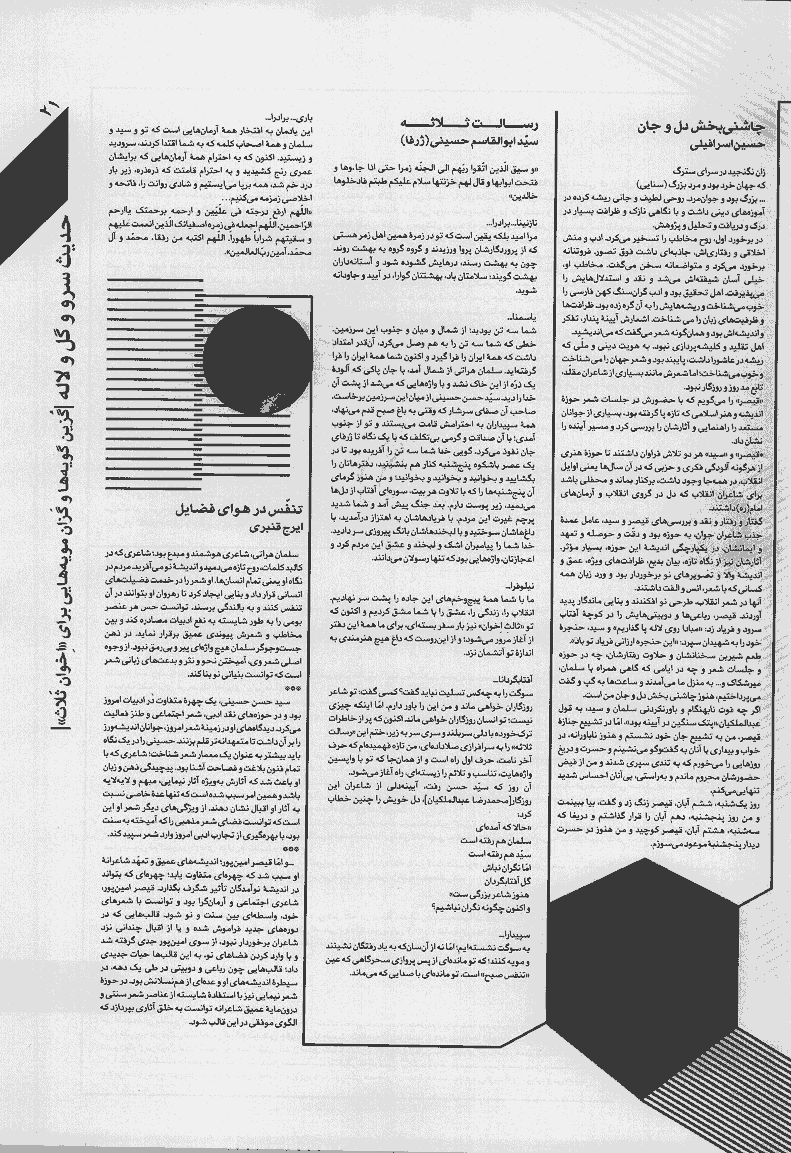 ۲۱
حدیث سرو و گل و لاله |گزین گویه‌ها و گران مویه‌هایی برای «اِخوان ثَلاث»|
چاشنی‌بخش دل و جان
حسین اسرافیلی
زان نگنجید در سرای سترگ
که جهان خرد بود و مرد بزرگ (سنایی)
... بزرگ بود و جوان‌مرد. روحی لطیف و جانی ریشه کرده در
آموزه‌های دینی داشت و با نگاهی نازک و ظرافت بسیار در
درک و دریافت و تحلیل و پژوهش.
در برخورد اول، روح مخاطب را تسخیر می‌کرد. ادب و منش
اخلاقی و رفتاری‌اش، جذبه‌ای داشت فوق تصور. فروتنانه
برخورد می‌کرد و متواضعانه سخن می‌گفت. مخاطب او،
خیلی آسان شیفته‌اش می‌شد و نقد و استدلال‌هایش را
می‌پذیرفت. اهل تحقیق بود و ادب گران‌سنگ کهن فارسی را
خوب می‌شناخت و ریشه‌هایش را به آن گره زده بود. ظرافت‌ها
و ظرفیت‌های زبان را می شناخت. اشعارش آیینهٔ پندار، تفکر
و اندیشه‌اش بود و همان‌گونه شعر می‌گفت که می‌اندیشید.
اهل تقلید و کلیشه‌پردازی نبود. به هویت دینی و ملّی که
ریشه در عاشورا داشت، پایبند بود و شعر جهان را می‌شناخت
و خوب می‌شناخت؛ اما شعرش مانند بسیاری از شاعران مقلّد،
تابع مد روز و روزگار نبود.
«قیصر» را می‌گویم که با حضورش در جلسات شعر حوزهٔ
اندیشه و هنر اسلامی که تازه پا گرفته بود، بسیاری از جوانان
مستعد را راهنمایی و آثارشان را بررسی کرد و مسیر آینده را
نشان داد.
«قیصر» و «سید» هر دو تلاش فراوان داشتند تا حوزهٔ هنری
از هرگونه آلودگی فکری و حزبی که در آن سال‌ها یعنی اوایل
انقلاب، در همه‌جا وجود داشت، برکنار بماند و محفلی باشد
برای شاعران انقلاب که دل در گروی انقلاب و آرمان‌های
امام(ره)داشتند.
گفتار و رفتار و نقد و بررسی‌های قیصر و سید، عامل عمدهٔ
جذب شاعران جوان، به حوزه بود و دقّت و حوصله و تعهد
و ایمانشان، در یکپارچگی اندیشهٔ این حوزه، بسیار مؤثر.
آثارشان نیز از نگاه تازه، بیان بدیع، ظرافت‌های ویژه، عمق و
اندیشهٔ والا و تصویرهای نو برخوردار بود و ورد زبان همه
کسانی که با شعر، انس و الفت داشتند.
آنها در شعر انقلاب، طرحی نو افکندند و بنایی ماندگار پدید
آوردند. قیصر، رباعی‌ها و دوبیتی‌هایش را در کوچهٔ آفتاب
سرود و فریاد زد: «مبادا روی لاله پا گذاریم» و سید، حنجرهٔ
خود را به شهیدان سپرد: «این حنجره ارزانی فریاد تو باد».
طعم شیرین سخنانشان و حلاوت رفتارشان، چه در حوزه
و جلسات شعر و چه در ایامی که گاهی همراه با سلمان،
میرشکاک و... به منزل ما می‌آمدند و ساعت‌ها به گپ و گفت
می‌پرداختیم، هنوز چاشنی بخش دل و جان من است.
اگر چه فوت نابهنگام و باورنکردنی سلمان و سید، به قول
عبدالملکیان«پتک سنگین در آیینه بود»، امّا در تشییع جنازهٔ
قیصر، من به تشییع جان خود نشستم و هنوز ناباورانه، در
خواب و بیداری با آنان به گفت‌وگو می‌نشینم و حسرت و دریغ
روزهایی را می‌خورم که به تندی سپری شدند و من از فیض
حضورشان محروم ماندم و به‌راستی، بی‌آنان احساس شدید
تنهایی می‌کنم.
روز یک‌شنبه، ششم آبان، قیصر زنگ زد و گفت، بیا ببینمت
و من روز پنجشنبه، دهم آبان را قرار گذاشتم و دریغا که
سه‌شنبه، هشتم آبان، قیصر کوچید و من هنوز در حسرت
دیدار پنجشنبهٔ موعود می‌سوزم.
رسالت ثلاثه
سیّد ابوالقاسم حسینی (ژرفا)
«و سیق الّذین اتّقوا ربّهم الی الجنّه زمرا حتی اذا جاءوها و
فتحت ابوابها و قال لهم خزنتها سلام علیکم طبتم فادخلوها
خالدین»
نازنینا...برادرا...
مرا امید بلکه یقین است که تو در زمرهٔ همین اهل زمر هستی
که از پروردگارشان پروا ورزیدند و گروه گروه به بهشت روند.
چون به بهشت رسند، درهایش گشوده شود و آستانه‌داران
بهشت گویند: سلامتان باد، بهشتتان گوارا، در آیید و جاودانه
شوید.
یاسمنا...
شما سه تن بودید: از شمال و میان و جنوب این سرزمین.
خطی که شما سه تن را به هم وصل می‌کرد، آن‌قدر امتداد
داشت که همهٔ ایران را فرا گیرد و اکنون شما همهٔ ایران را فرا
گرفته‌اید. سلمان هراتی از شمال آمد، با جان پاکی که آلودهٔ
یک ذرّه از این خاک نشد و با واژه‌هایی که می‌شد از پشت آن
خدا را دید. سیّد حسن حسینی از میان این سرزمین برخاست،
صاحب آن صفای سرشار که وقتی به باغ صبح قدم می‌نهاد،
همهٔ سپیداران به احترامش قامت می‌بستند و تو از جنوب
آمدی؛ با آن صداقت و گرمی بی‌تکلف که با یک نگاه تا ژرفای
جان نفوذ می‌کرد. گویی خدا شما سه تن را آفریده بود تا در
یک عصر باشکوه پنج‌شنبه کنار هم بنشینید، دفترهاتان را
بگشایید و بخوانید و بخوانید و بخوانید؛ و من هنوز گرمای
آن پنج‌شنبه‌ها را که با تلاوت هر بیت، سوره‌ای آفتاب از دل‌ها
می‌دمید، زیر پوست دارم. بعد جنگ پیش آمد و شما شدید
پرچم غیرت این مردم. با فریادهاشان به اهتزاز درآمدید، با
داغ‌هاشان سوختید و با لبخندهاشان بانگ پیروزی سر دادید.
خدا شما را پیامبران اشک و لبخند و عشق این مردم کرد و
اعجازتان، واژه‌هایی بود که تنها رسولان می‌دانند.
نیلوفرا...
ما با شما همهٔ پیچ‌وخم‌های این جاده را پشت سر نهادیم.
انقلاب را، زندگی را، عشق را با شما مشق کردیم و اکنون که
تو «ثالث اخوان» نیز بار سفر بسته‌ای، برای ما همهٔ این دفتر
از آغاز مرور می‌شود؛ و از این‌روست که داغ هیچ هنرمندی به
اندازهٔ تو آتشمان نزد.
آفتابگردانا...
سوگت را به چه‌کس تسلیت نباید گفت؟ کسی گفت: تو شاعر
روزگاران خواهی ماند و من این را باور دارم. امّا اینکه چیزی
نیست: تو انسان روزگاران خواهی ماند. اکنون که پر از خاطرات
ترک‌خورده با دلی سربلند و سری سر به زیر، ختم این «رسالت
ثلاثه» را به سرافرازی صلا داده‌ای، من تازه فهمیده‌ام که حرف
آخر نامت، حرف اول راه است و از همان‌جا که تو با واپسین
واژه‌هایت، تناسب و تلائم را زیسته‌ای، راه آغاز می‌شود.
آن روز که سیّد حسن رفت، آیینه‌دلی از شاعران این
روزگار[محمدرضا عبدالملکیان]، دل خویش را چنین خطاب
کرد:
«حالا که آمده‌ای
سلمان هم رفته است
سیّد هم رفته است
امّا نگران نباش
گل آفتابگردان
هنوز شاعر بزرگی ست»
و اکنون چگونه نگران نباشیم؟
سپیدارا...
به سوگت نشسته‌ایم؛ امّا نه از آن‌سان که به یاد رفتگان نشینند
و مویه کنند؛ که تو مانده‌ای از پس پروازی سحرگاهی که عین
«تنفس صبح» است. تو مانده‌ای با صدایی که می‌ماند.
باری... برادرا...
این یادمان به افتخار همهٔ آرمان‌هایی است که تو و سید و
سلمان و همهٔ اصحاب کلمه که به شما اقتدا کردند، سرودید
و زیستید. اکنون که به احترام همهٔ آرمان‌هایی که برایشان
عمری رنج کشیدید و به احترام قامتت که ذره‌ذره، زیر بار
درد خم شد، همه برپا می‌ایستیم و شادی روانت را، فاتحه و
اخلاصی زمزمه می‌کنیم...
«اللّهم ارفع درجته فی علّیین و ارحمه برحمتک یاارحم
الرّاحمین. اللّهم اجعله فی زمره اصفیائک الذین انعمت علیهم
و سقیتهم شراباً طهوراً. اللّهم اکتبه من رفقاء محمّد و آل
محمّد. آمین ربّ‌العالمین».
تنفّس در هوای فضایل
ایرج قنبری
سلمان هراتی، شاعری هوشمند و مبدع بود؛ شاعری که در
کالبد کلمات، روح تازه می‌دمید و اندیشهٔ نو می‌آفرید. مردم در
نگاه او یعنی تمام انسان‌ها. او شعر را در خدمت فضیلت‌های
انسانی قرار داد و بنایی ایجاد کرد تا رهروان او بتوانند در آن
تنفس کنند و به بالندگی برسند. توانست حس هر عنصر
بومی را به طور شایسته به نفع ادبیات مصادره کند و بین
مخاطب و شعرش پیوندی عمیق برقرار نماید. در ذهن
جست‌وجوگر سلمان هیچ واژه‌ای پیر و بی‌رمق نبود. از وجوه
اصلی شعر وی، آمیختن نحو و نثر و بدعت‌های زبانی شعر
است که توانست بنیانی نو بنا کند.
***
سید حسن حسینی، یک چهرهٔ متفاوت در ادبیات امروز
بود و در حوزه‌های نقد ادبی، شعر اجتماعی و طنز فعالیت
می‌کرد. دیدگاه‌های او در زمینهٔ شعر امروز، جوانان اندیشه‌ورز
را بر آن داشت تا متعهدانه‌تر قلم بزنند. حسینی را در یک نگاه
باید بیشتر به عنوان یک معمار شعر شناخت؛ شاعری که با
تمام فنون بلاغت و فصاحت آشنا بود. پیچیدگی ذهن و زبان
او باعث شد که آثارش به‌ویژه آثار نیمایی، مبهم و لایه‌لایه
باشد و همین امر سبب شده است که تنها عدهٔ خاصی نسبت
به آثار او اقبال نشان دهند. از ویژگی‌های دیگر شعر او این
است که توانست فضای شعر مذهبی را که آمیخته به سنت
بود، با بهره‌گیری از تجارب ادبی امروز وارد شعر سپید کند.
***
...و امّا قیصر امین‌پور: اندیشه‌های عمیق و تعهّد شاعرانهٔ
او سبب شد که چهره‌ای متفاوت یابد؛ چهره‌ای که بتواند
در اندیشهٔ نوآمدگان تأثیر شگرف بگذارد. قیصر امین‌پور،
شاعری اجتماعی و آرمان‌گرا بود و توانست با شعرهای
خود، واسطه‌ای بین سنت و نو شود. قالب‌هایی که در
دوره‌های جدید فراموش شده و یا از اقبال چندانی نزد
شاعران برخوردار نبود، از سوی امین‌پور جدی گرفته شد
و با وارد کردن فضاهای نو، به این قالب‌ها حیات جدیدی
داد؛ قالب‌هایی چون رباعی و دوبیتی در طی یک دهه، در
سیطرهٔ اندیشه‌های او و عده‌ای از هم‌نسلانش بود. در حوزهٔ
شعر نیمایی نیز با استفادهٔ شایسته از عناصر شعر سنتی و
درون‌مایهٔ عمیق شاعرانه توانست به خلق آثاری بپردازد که
الگوی موفقی در این قالب شود.